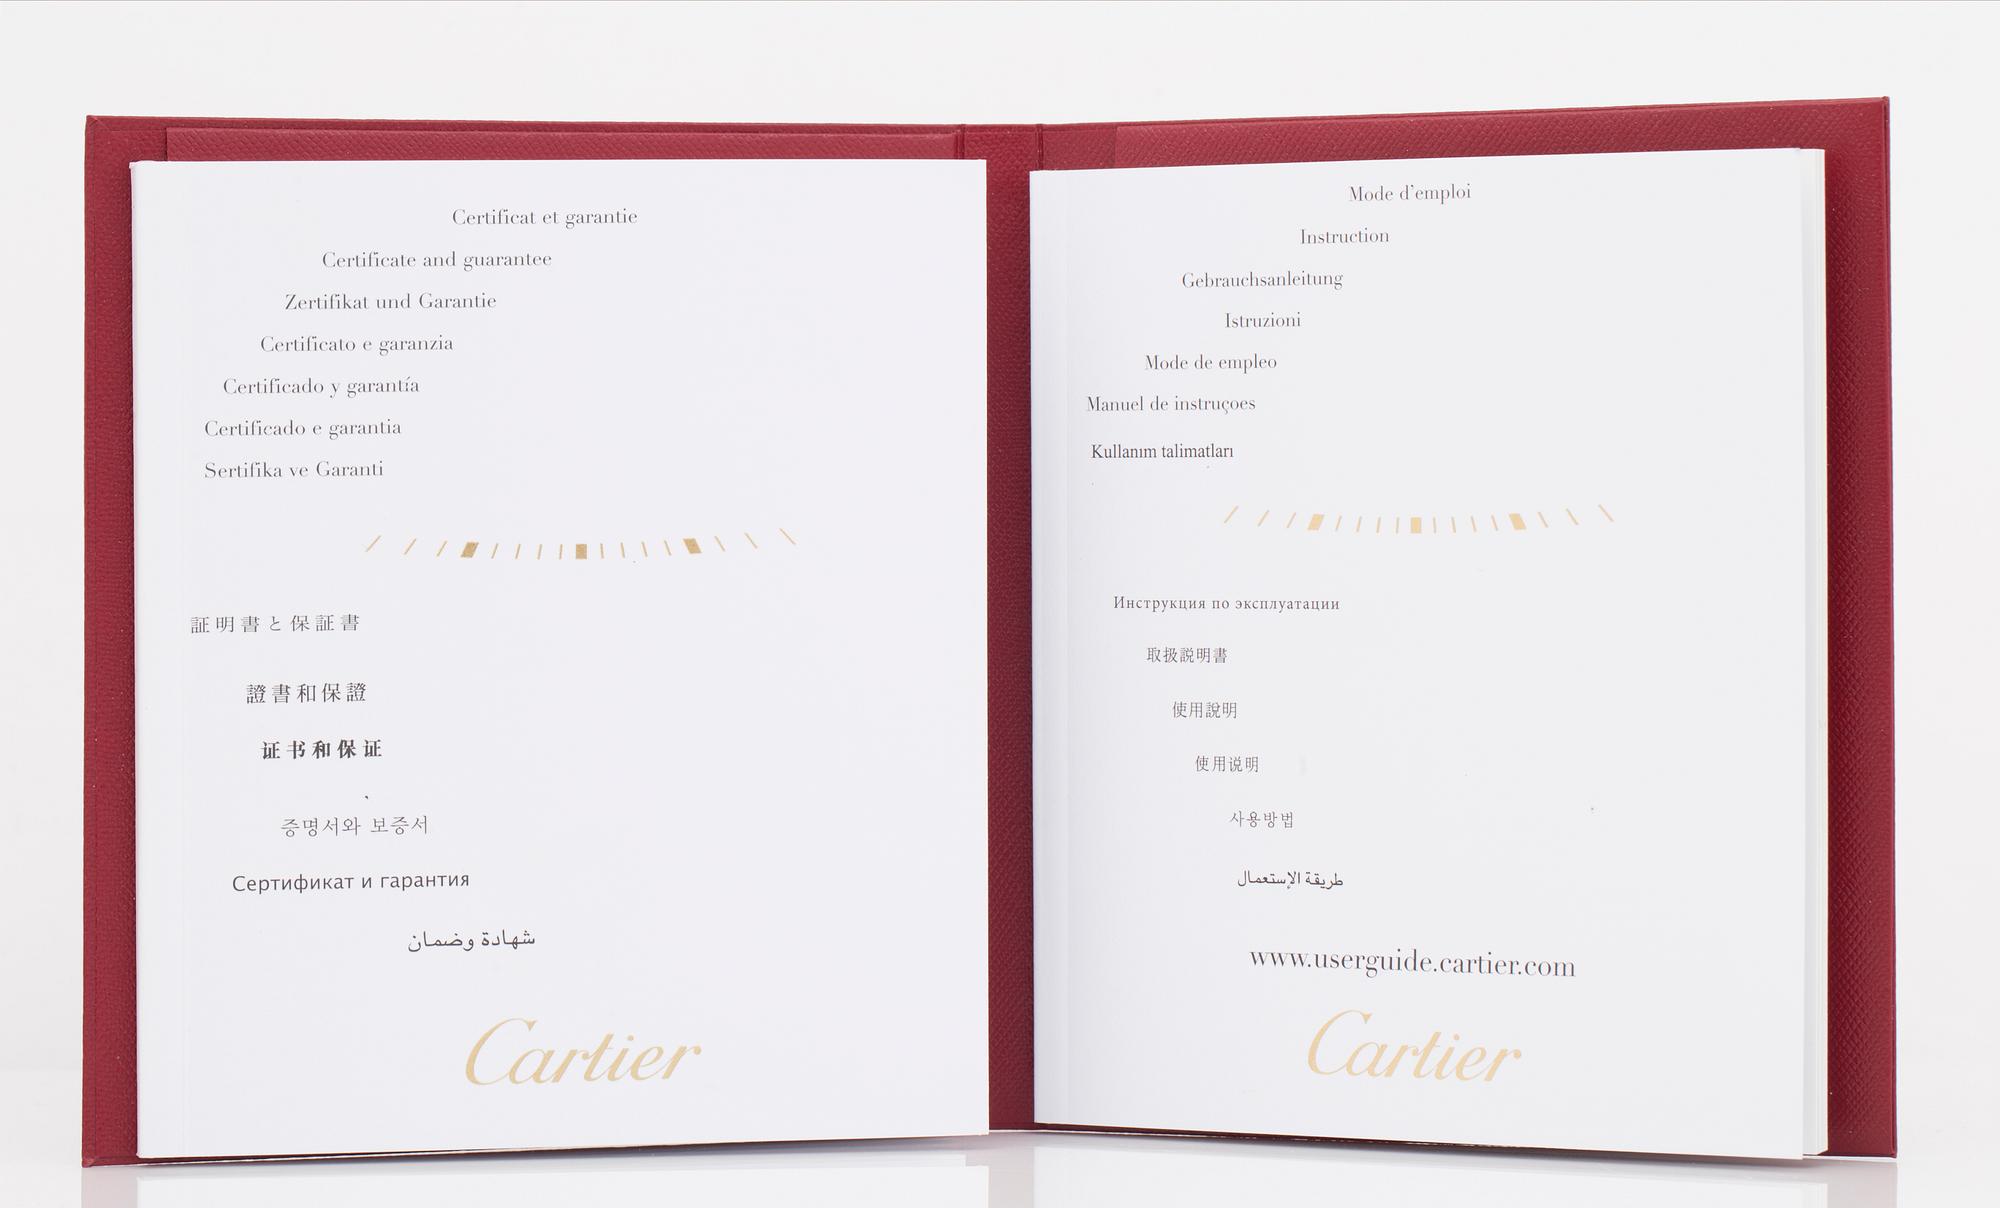 Certificat et garantie
Certificate and guarantee
Zertifikat und Garantie
Certificato e garanzia
Certificado y garantía
Certificado e garantia
Sertifika ve Garanti
証明書と保証書
證書和保證
证书和保证
증명서와 보증서
Сертификат и гарантия
شهادة وضمان
Cartier
Mode d'emploi
Instruction
Gebrauchsanleitung
Istruzioni
Mode de empleo
Manuel de instruçoes
Kullanım talimatları
Инструкция по эксплуатации
取扱説明書
使用說明
使用说明
사용방법
طريقة الإستعمال
www.userguide.cartier.com
Cartier